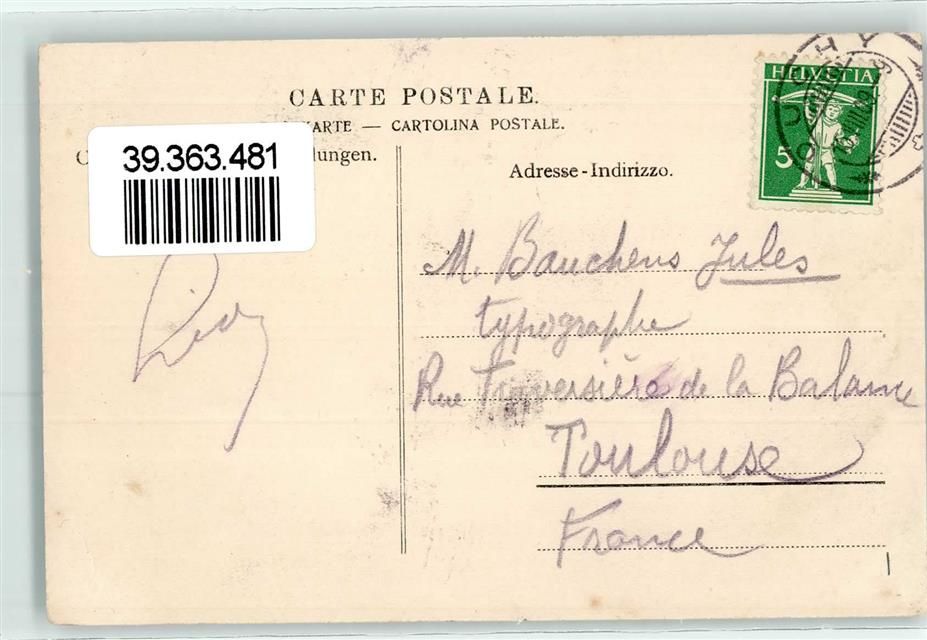 CARTE POSTALE.
KARTE — CARTOLINA POSTALE.
39.363.481
lungen.
Adresse-Indirizzo.
HELVETIA
5
OUCHY
M. Bauchens Jules
typographe
Rue Traversière de la Balance
Toulouse
France